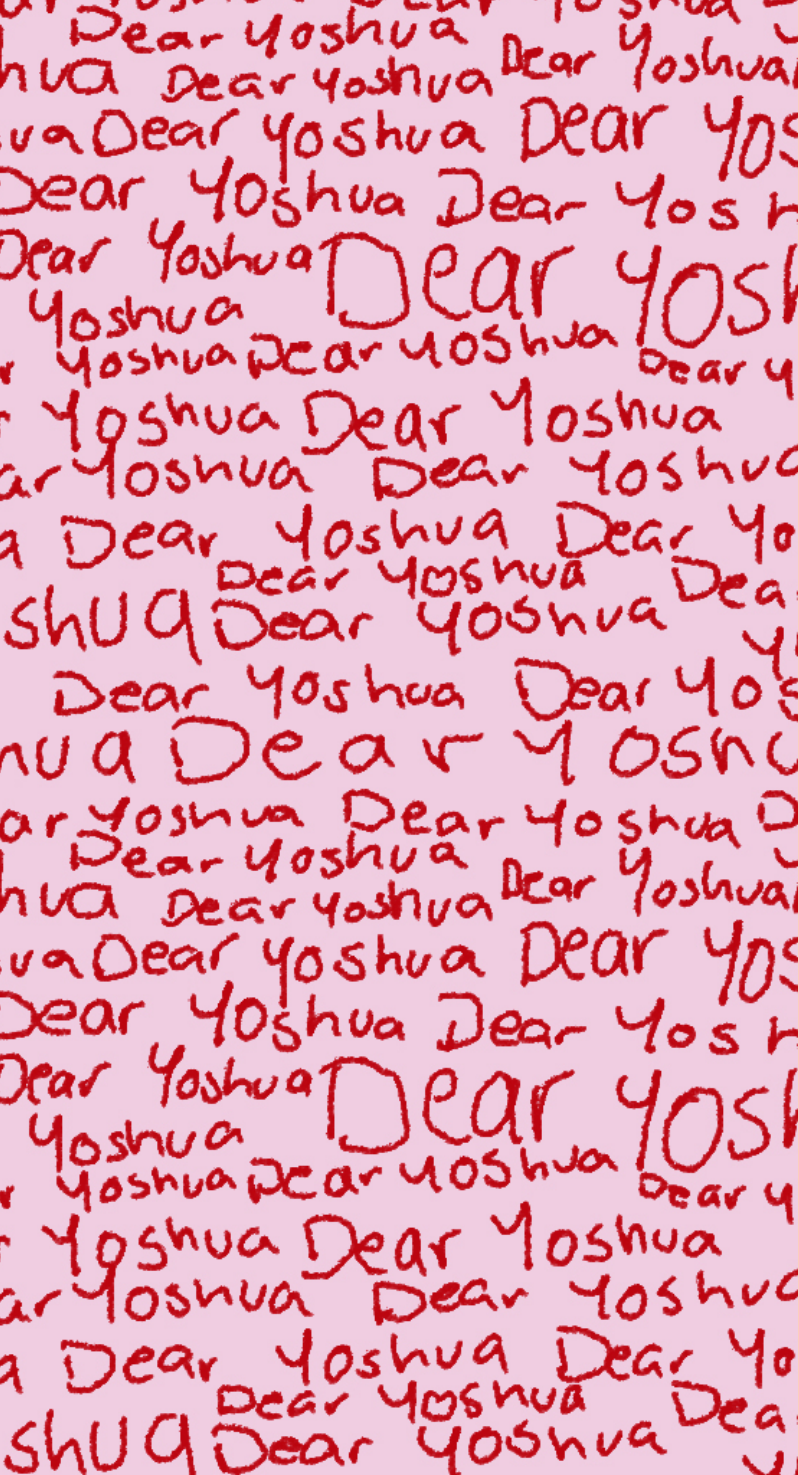 Dear Yoshua
hua Dear Yoshua Dear Yoshua
ua Dear Yoshua Dear Yos
Dear Yoshua Dear Yosh
Dear Yoshua Dear Yosh
Yoshua
r Yoshua Dear Yoshua Dear Y
r Yoshua Dear Yoshua
ar Yoshua Dear Yoshua
a Dear Yoshua Dear Yo
Dear Yoshua Dea
shua Dear Yoshua Y
Dear Yoshua Dear Yos
hua Dear Yoshu
ar Yoshua Dear Yoshua D
Dear Yoshua
hua Dear Yoshua Dear Yoshua
ua Dear Yoshua Dear Yos
Dear Yoshua Dear Yosh
Dear Yoshua Dear Yosh
Yoshua
r Yoshua Dear Yoshua Dear Y
r Yoshua Dear Yoshua
ar Yoshua Dear Yoshua
a Dear Yoshua Dear Yo
Dear Yoshua Dea
shua Dear Yoshua